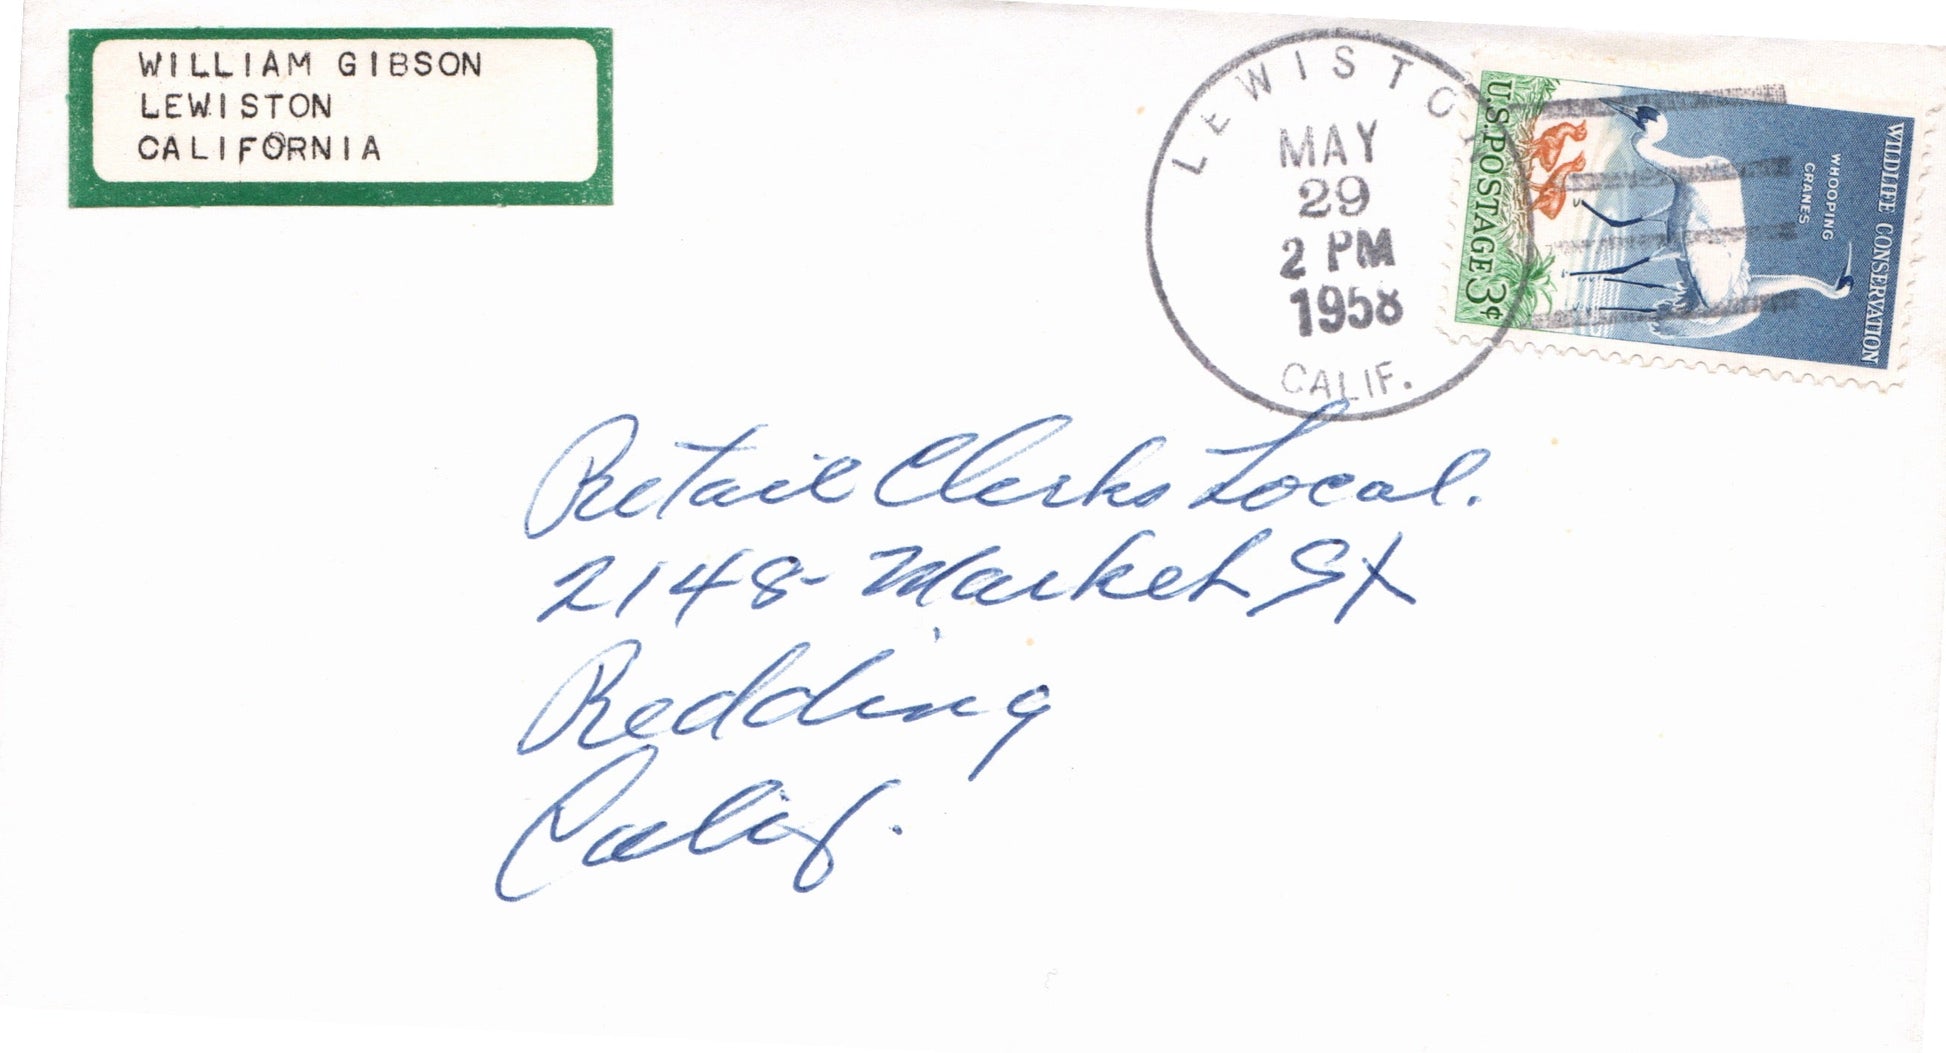 WILLIAM GIBSON
LEWISTON
CALIFORNIA
LEWISTON
MAY
29
2 PM
1958
CALIF.
U.S. POSTAGE 3¢
WHOOPING
CRANES
WILDLIFE CONSERVATION
Retail Clerks Local.
2148- Market St
Redding
Calif.